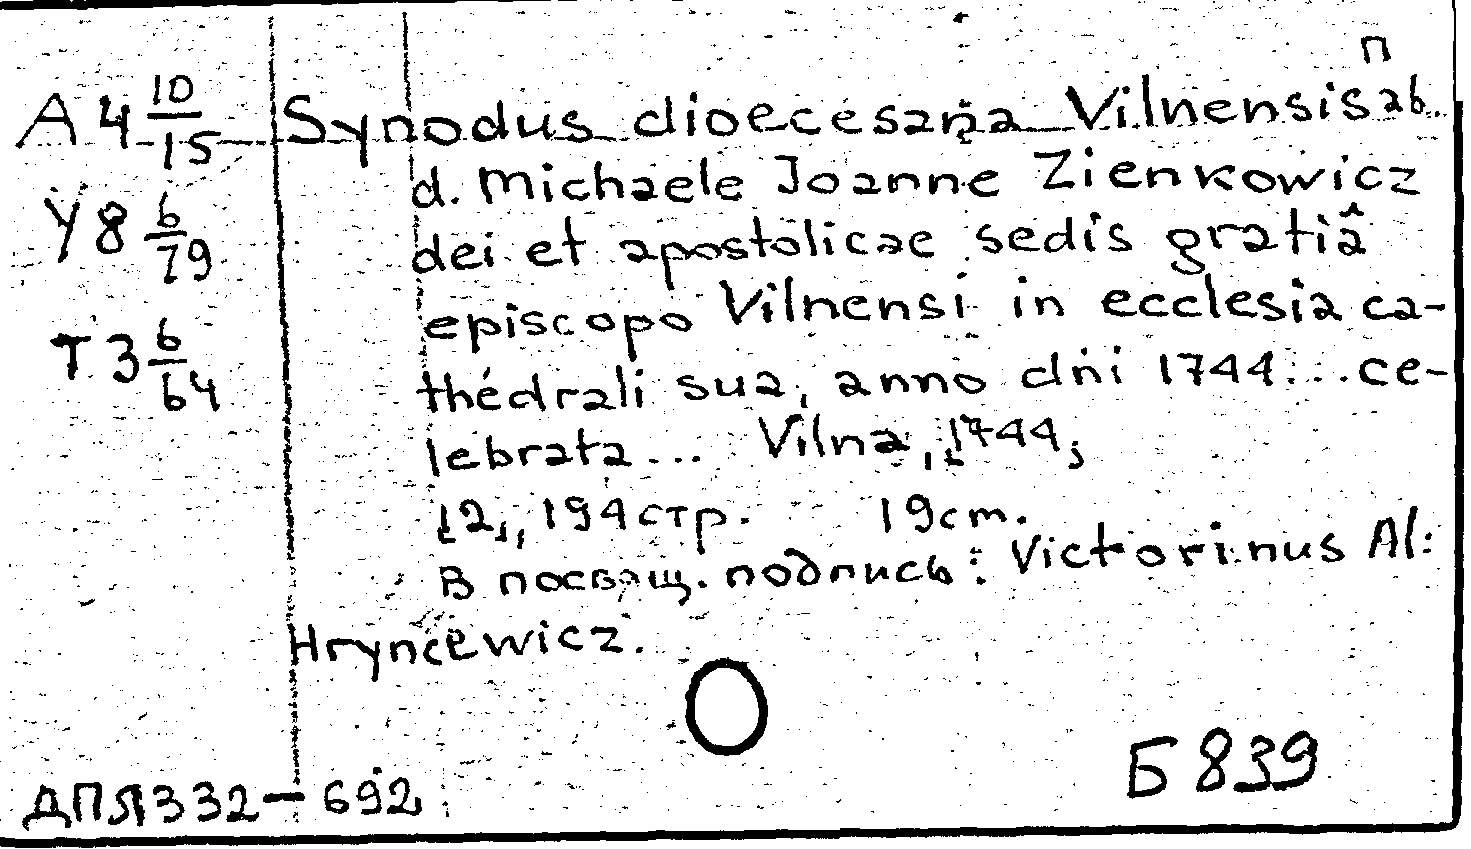 п
A 4 10/15 Synodus dioecesana Vilnensis ab
d. Michaele Joanne Zienkowicz
У 8 6/79 dei et apostolicae sedis gratiâ
episcopo Vilnensi in ecclesia ca-
T 3 6/64 thedrali sua, anno dni 1744...ce-
lebrata... Vilna, 1744;
[2], 194 стр. 19cm.
В посвящ. подпись: Victorinus Al:
Hryncewicz.
Б 839
ДПЛ 332 - 692